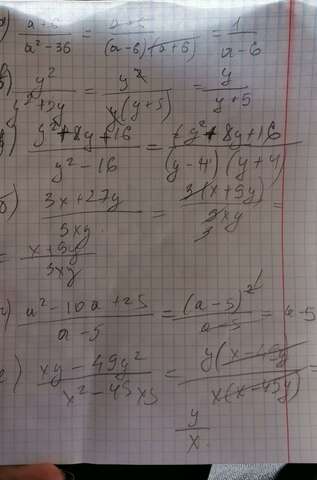 a+6/a²-36 = a+6/(a-6)(a+6) = 1/a-6
y²/y²+5y = y²/y(y+5) = y/y+5
y²+8y+16/y²-16 = y²+8y+16/(y-4)(y+4)
б) 3x+27y/3xy = 3(x+9y)/3xy =
= x+9y/3xy
г) a²-10a+25/a-5 = (a-5)²/a-5 = a-5
е) xy-49y²/x²-49xy = y(x-49y)/x(x-49y) =
y/x